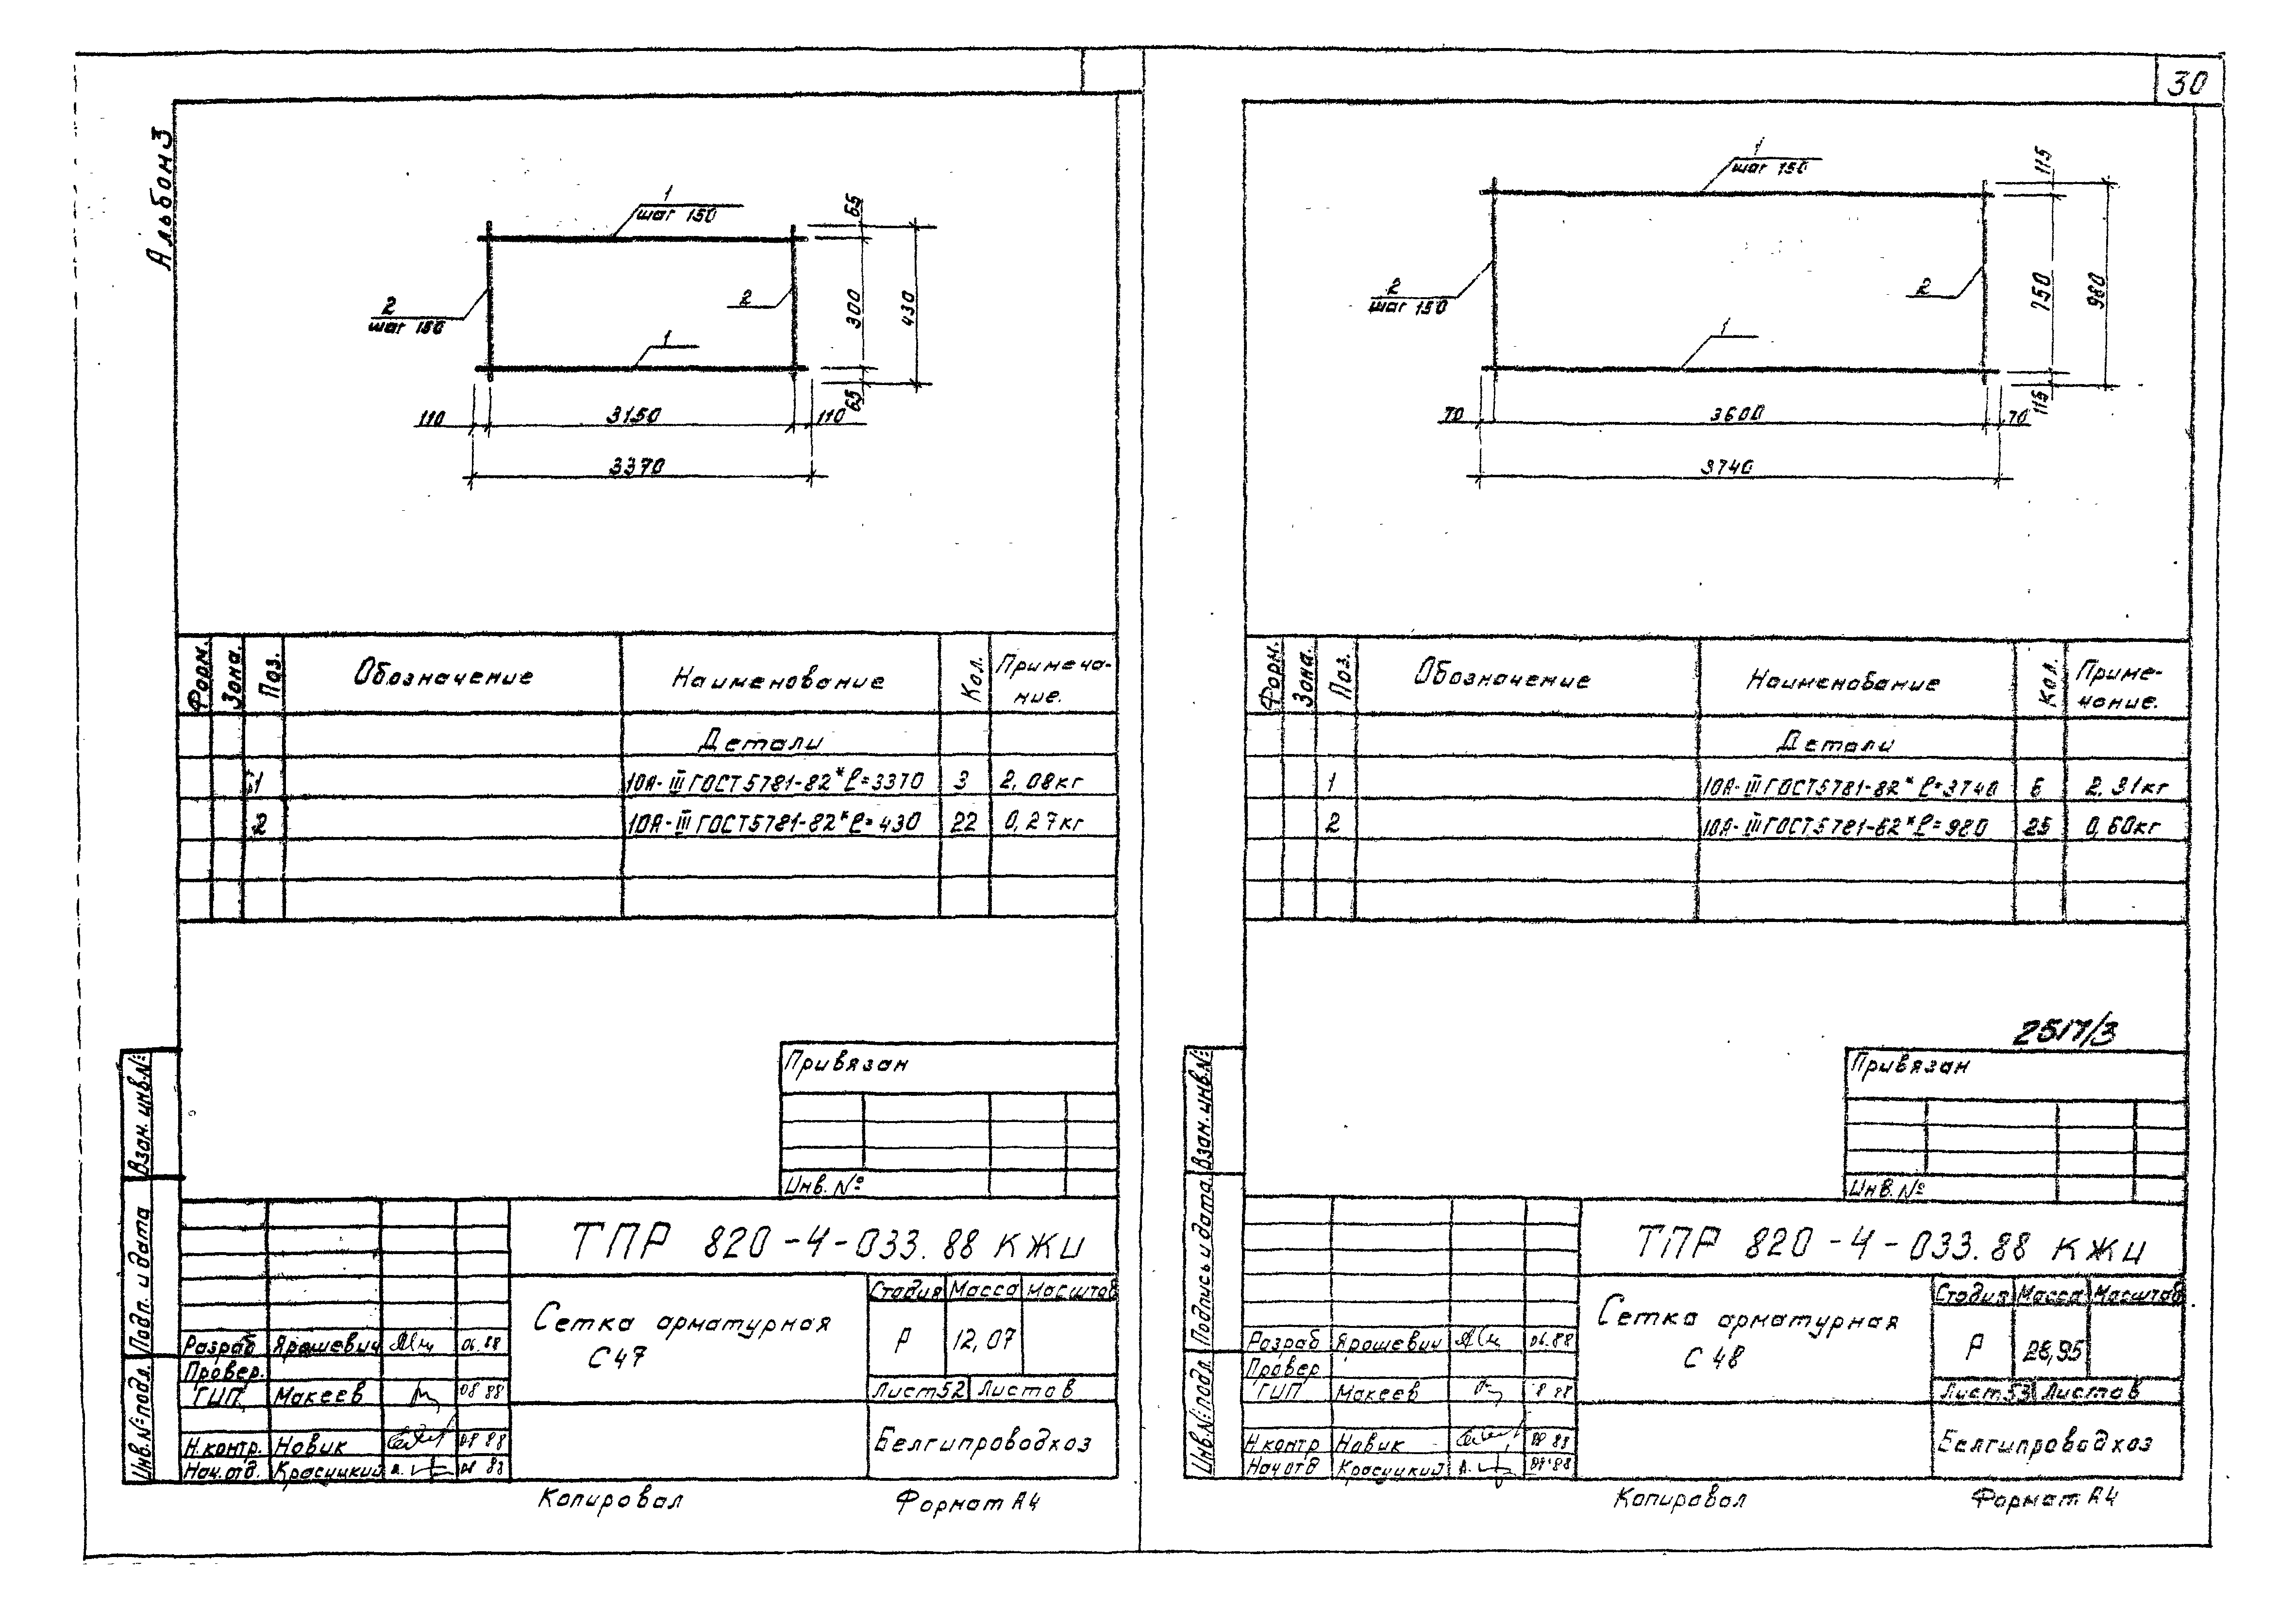 30
Альбом 3
1
шаг 150
2
шаг 150
2
1
65
300
430
65
110 3150 110
3370
Форм. Зона. Поз. Обозначение Наименование Кол. Примеча-
ние.
Детали
1 10А-III ГОСТ 5781-82* ℓ=3370 3 2,08кг
2 10А-III ГОСТ 5781-82* ℓ=430 22 0,27кг
Привязан
Инв. №
ТПР 820-4-033.88 КЖИ
Сетка арматурная
С47
Стадия Масса Масштаб
Р 12,07
Лист 52 Листов
Белгипроводхоз
Разраб Ярошевич 06.88
Провер.
ГИП Макеев 08 88
Н.контр. Новик 08 88
Нач.отд. Красуцкий 88
Взам. инв. №:
Подп. и дата
Инв. № подл.
Копировал Формат А4
1
шаг 150
2
шаг 150
2
1
115
750
980
115
70 3600 70
3740
Форм. Зона. Поз. Обозначение Наименование Кол. Приме-
чание.
Детали
1 10А-III ГОСТ 5781-82* ℓ=3740 6 2,31кг
2 10А-III ГОСТ 5781-82* ℓ=980 25 0,60кг
2517/3
Привязан
Инв. №
ТПР 820-4-033.88 КЖИ
Сетка арматурная
С 48
Стадия Масса Масштаб
Р 28,95
Лист 53 Листов
Белгипроводхоз
Разраб Ярошевич 06.88
Провер
ГИП Макеев 8 88
Н.контр Новик 08 88
Нач отд Красуцкий 08 88
Взам. инв. №:
Подпись и дата
Инв. № подл.
Копировал Формат А4